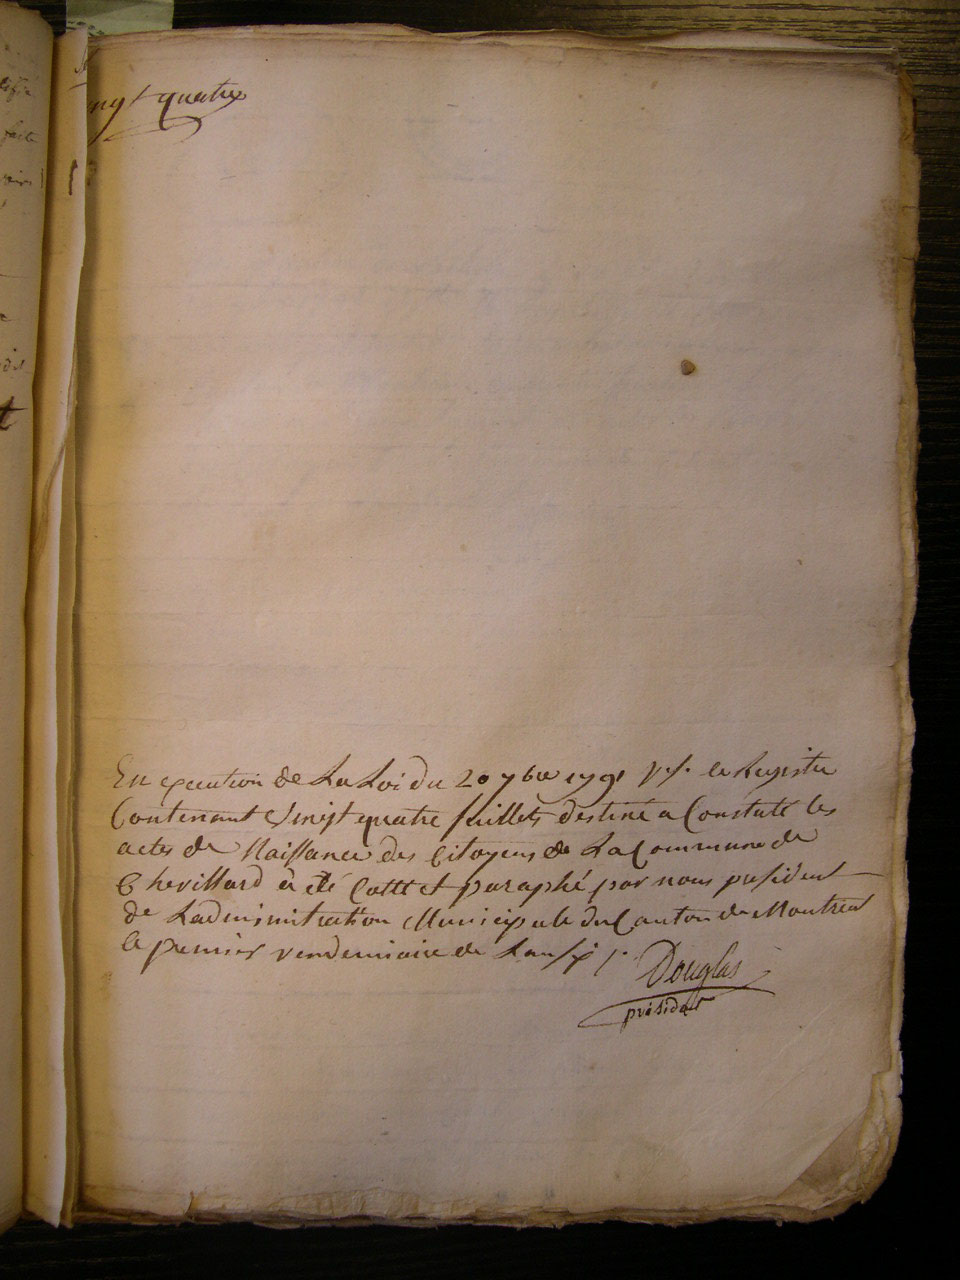 vingt quatre
En execution de La Loi du 20 7bre 1791 v.s. le Registre
Contenant Vingt quatre fuillets destiné a Constaté les
actes de Naissance des Citoyens de La Commune de
Chevillard à été Cotté et paraphé par nous president
de Ladminitration Municipale du Canton de Montreal
le premier vendemiaire de Lan six
Douglas
président